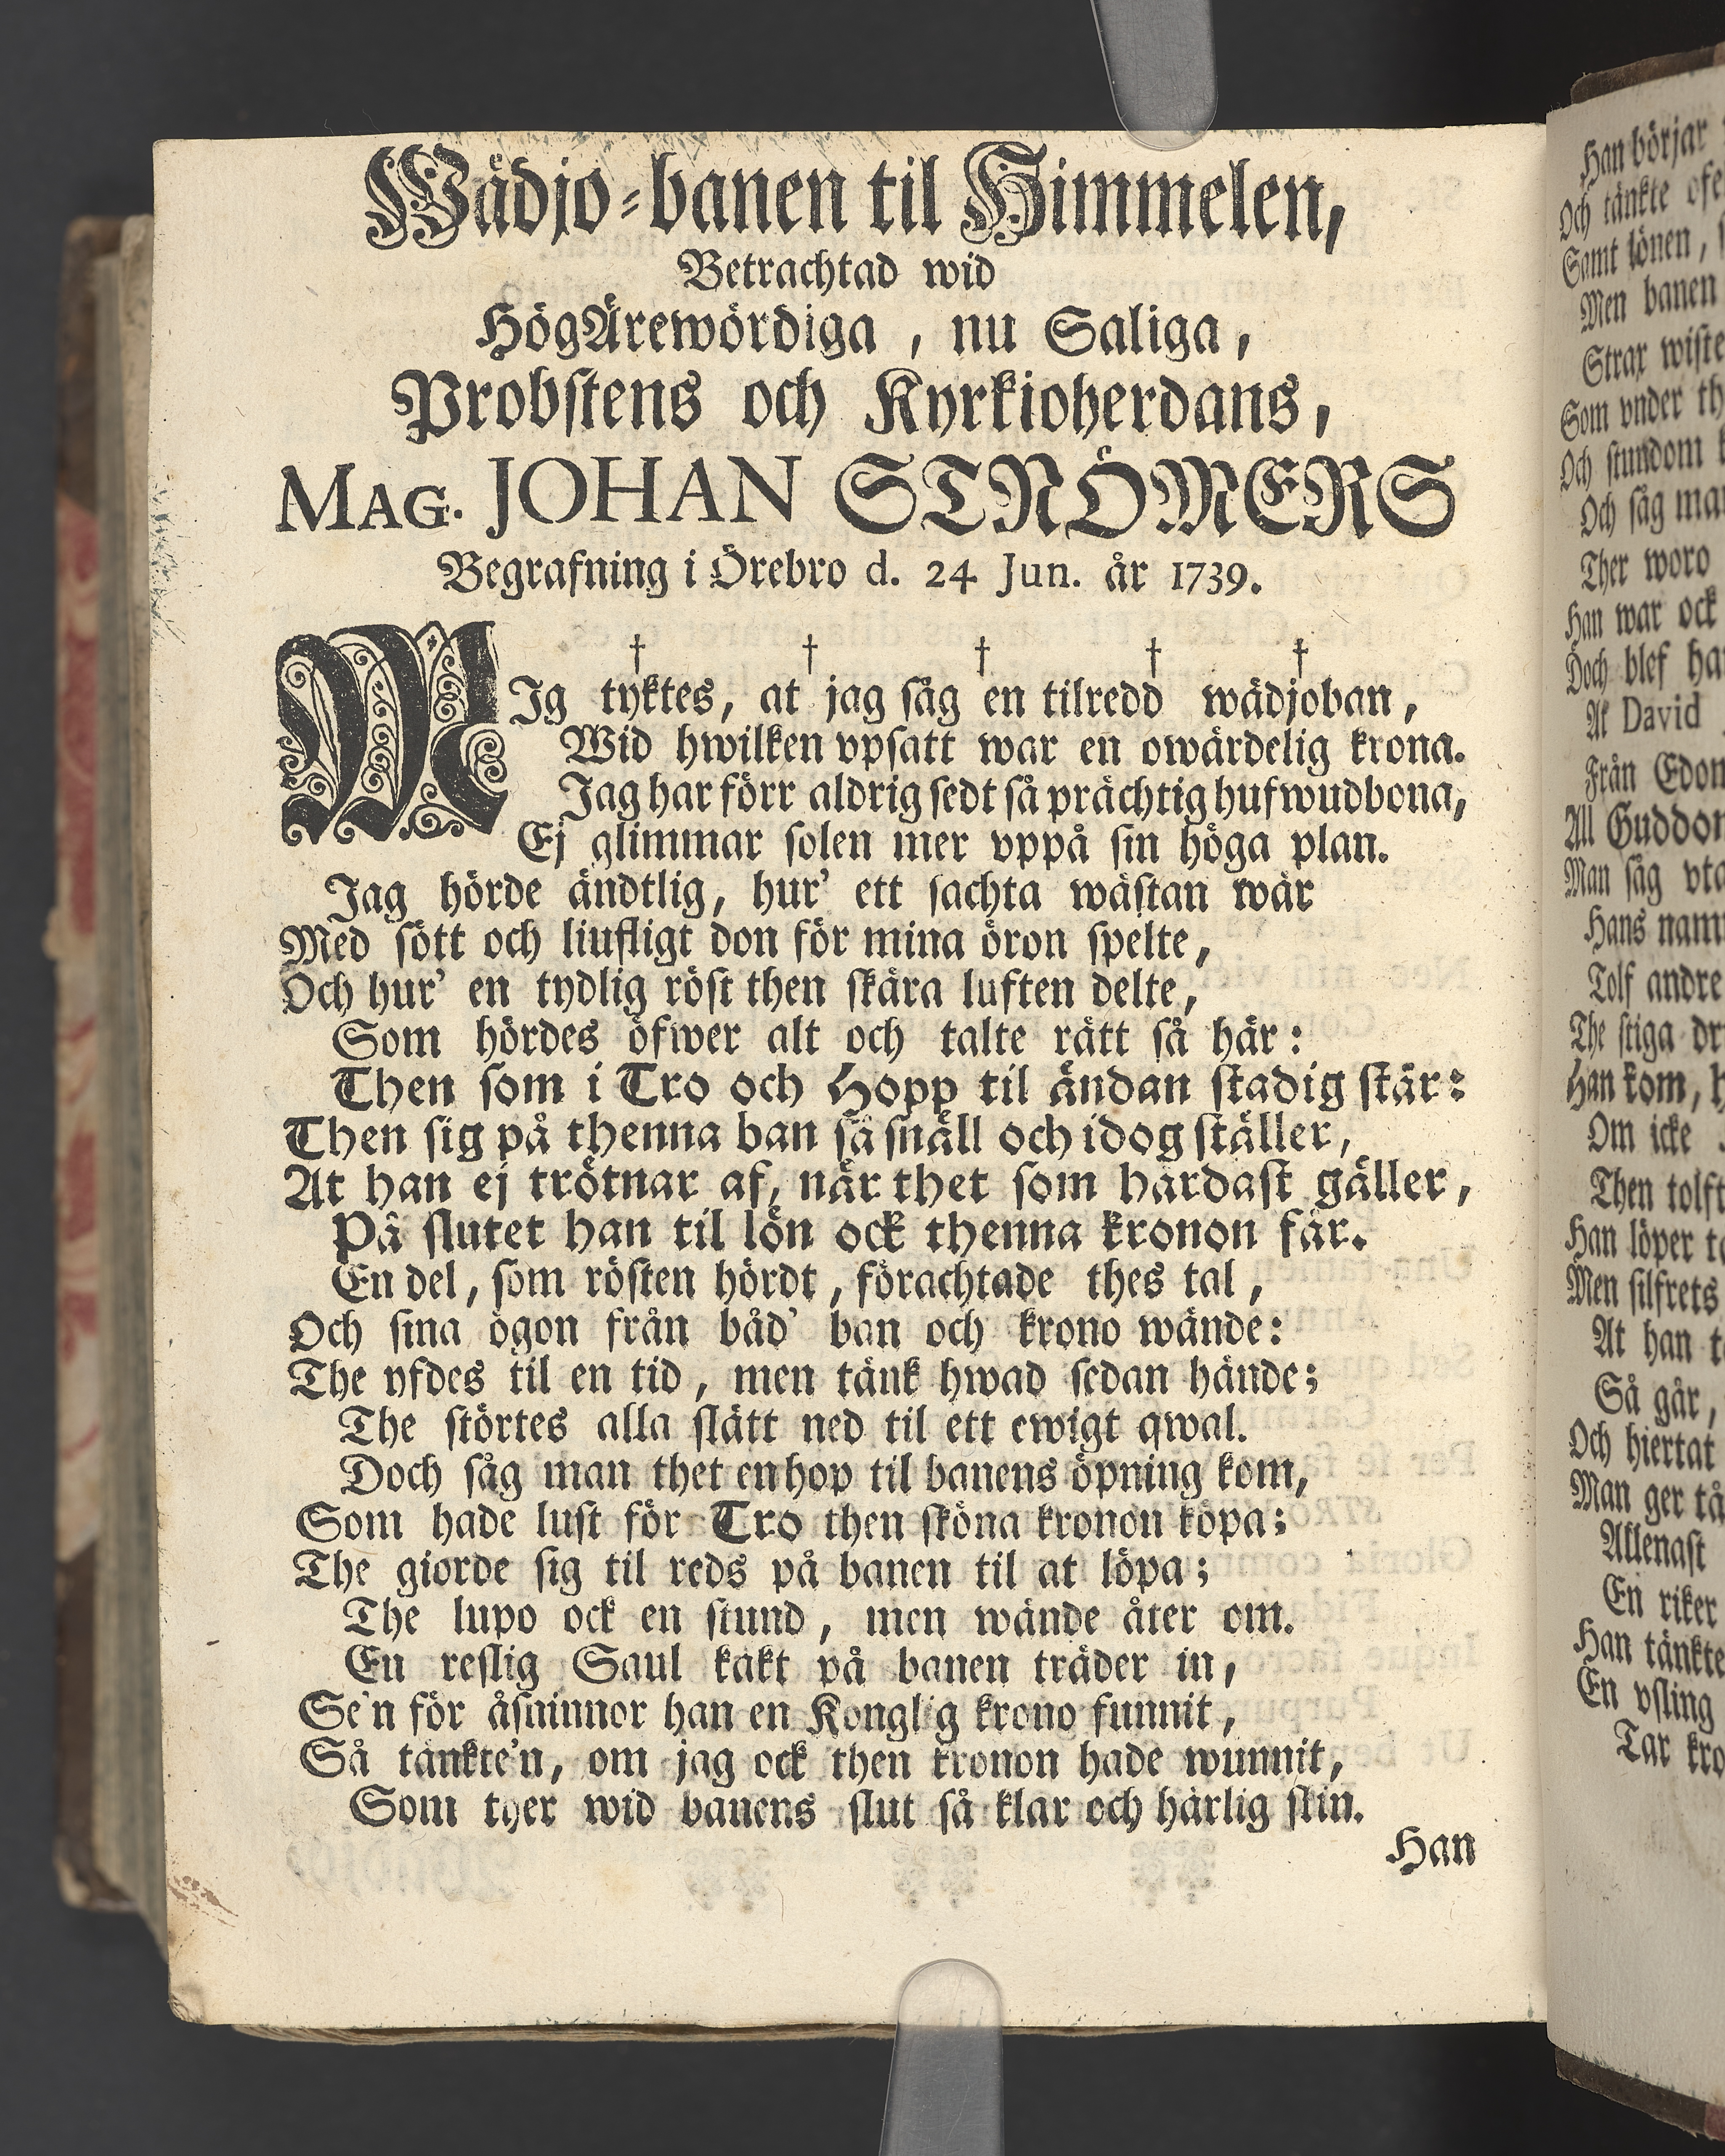 Wädjo-banen til Himmelen,
Betrachtad wid
HögÄrewördiga, nu Saliga,
Probstens och Kyrkioherdans,
MAG. JOHAN STRÖMERS
Begrafning i Örebro d. 24 Jun. år 1739.
† † † † †
MIg tyktes, at jag såg en tilredd wädjoban,
Wid hwilken vpsatt war en owärdelig krona.
Jag har förr aldrig sedt så prächtig hufwudbona,
Ej glimmar solen mer vppå sin höga plan.
Jag hörde ändtlig, hur' ett sachta wästan wär
Med sött och liufligt don för mina öron spelte,
Och hur' en tydlig röst then skära luften delte,
Som hördes öfwer alt och talte rätt så här:
Then som i Tro och Hopp til ändan stadig står:
Then sig på thenna ban så snäll och idog ställer,
At han ej trötnar af, när thet som hårdast gäller,
På slutet han til lön ock thenna kronon får.
En del, som rösten hördt, förachtade thes tal,
Och sina ögon från båd' ban och krono wände:
The yfdes til en tid, men tänk hwad sedan hände;
The störtes alla slätt ned til ett ewigt qwal.
Doch såg man thet en hop til banens öpning kom,
Som hade lust för Tro then sköna kronon köpa;
The giorde sig til reds på banen til at löpa;
The lupo ock en stund, men wände åter om.
En reslig Saul käkt på banen träder in,
Se'n för åsninnor han en Konglig krono funnit,
Så tänkte'n, om jag ock then kronon hade wunnit,
Som ther wid banens slut så klar och härlig skin.
Han
Han börjar
Och tänkte
Samt lönen,
Men banen
Strax wiste
Som vnder
Och stundom
Och såg
Ther woro
Han war ock
Doch blef
At David
Från
All
Man såg
Hans
Tolf andre
The stiga
Han kom,
Om icke
Then
Han löper
Men silfrets
At han
Så går,
Och hiertat
Man ger
Allenast
En riker
Han tänkte
En vsling
Tar